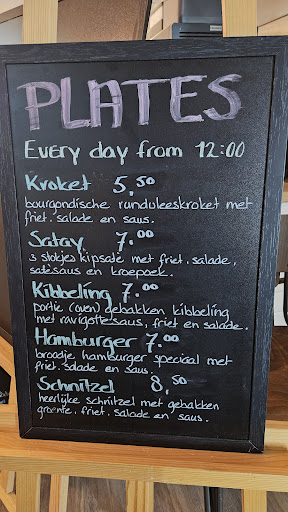 PLATES
Every day from 12:00
Kroket 5,50
bourgondische runduleeskroket met
friet, salade en saus.
Satay 7,00
3 stokjes kipsaté met friet, salade,
satésaus en kroepoek.
Kibbeling 7,00
portie (oven) gebakken kibbeling
met ravigottesaus, friet en salade.
Hamburger 7,00
broodje hamburger speciaal met
friet, salade en saus.
Schnitzel 8,50
heerlijke schnitzel met gebakken
groente, friet, salade en saus.